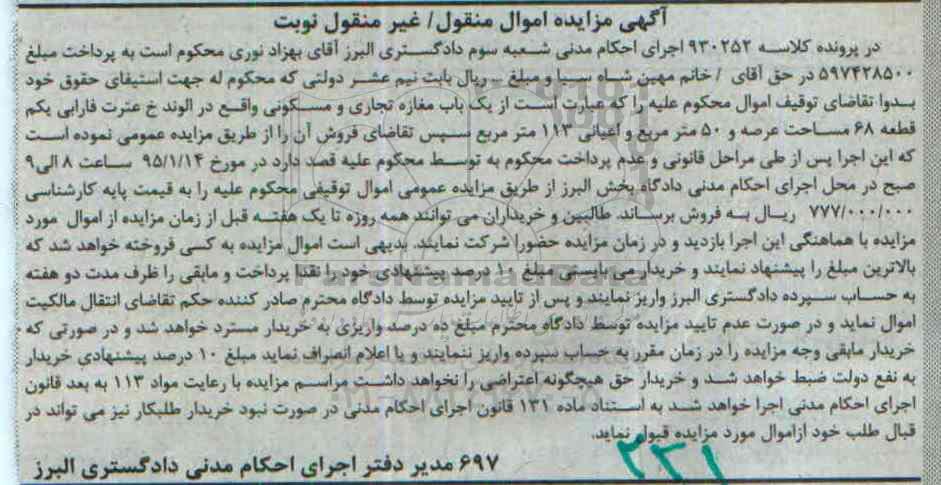 آگهی مزایده اموال منقول/ غیر منقول نوبت
در پرونده کلاسه ۹۳۰۲۵۲ اجرای احکام مدنی شعبه سوم دادگستری البرز آقای بهزاد نوری محکوم است به پرداخت مبلغ
۵۹۷۴۲۸۵۰۰ در حق آقای / خانم مهین شاه سیا و مبلغ ... ریال بابت نیم عشر دولتی که محکوم له جهت استیفای حقوق خود
بدوا تقاضای توقیف اموال محکوم علیه را که عبارت است از یک باب مغازه تجاری و مسکونی واقع در الوند خ عترت فارابی یکم
قطعه ۶۸ مساحت عرصه و ۵۰ متر مربع و اعیانی ۱۱۳ متر مربع سپس تقاضای فروش آن را از طریق مزایده عمومی نموده است
که این اجرا پس از طی مراحل قانونی و عدم پرداخت محکوم به توسط محکوم علیه قصد دارد در مورخ ۹۵/۱/۱۴ ساعت ۸ الی ۹
صبح در محل اجرای احکام مدنی دادگاه بخش البرز از طریق مزایده عمومی اموال توقیفی محکوم علیه را به قیمت پایه کارشناسی
۷۷۷/۰۰۰/۰۰۰ ریال به فروش برساند. طالبین و خریداران می توانند همه روزه تا یک هفته قبل از زمان مزایده از اموال مورد
مزایده با هماهنگی این اجرا بازدید و در زمان مزایده حضورا شرکت نمایند. بدیهی است اموال مزایده به کسی فروخته خواهد شد که
بالاترین مبلغ را پیشنهاد نمایند و خریدار می بایستی مبلغ ۱۰ درصد پیشنهادی خود را نقدا پرداخت و مابقی را ظرف مدت دو هفته
به حساب سپرده دادگستری البرز واریز نمایند و پس از تایید مزایده توسط دادگاه محترم صادر کننده حکم تقاضای انتقال مالکیت
اموال نماید و در صورت عدم تایید مزایده توسط دادگاه محترم مبلغ ده درصد واریزی به خریدار مسترد خواهد شد و در صورتی که
خریدار مابقی وجه مزایده را در زمان مقرر به حساب سپرده واریز ننمایند و یا اعلام انصراف نماید مبلغ ۱۰ درصد پیشنهادی خریدار
به نفع دولت ضبط خواهد شد و خریدار حق هیچگونه اعتراضی را نخواهد داشت مراسم مزایده با رعایت مواد ۱۱۳ به بعد قانون
اجرای احکام مدنی اجرا خواهد شد به استناد ماده ۱۳۱ قانون اجرای احکام مدنی در صورت نبود خریدار طلبکار نیز می تواند در
قبال طلب خود ازاموال مورد مزایده قبول نماید.
۶۹۷ مدیر دفتر اجرای احکام مدنی دادگستری البرز
۲۳۱
ParsNamadData